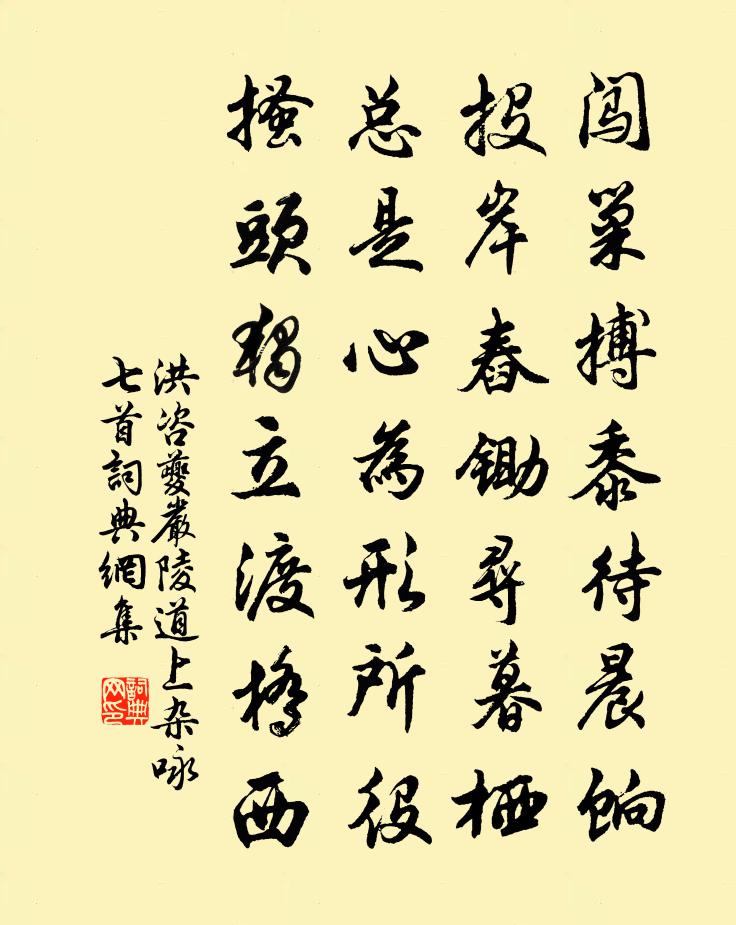 闯巢搏黍待晨餉
投岸舂鋤尋暮栖
总是心為形所役
搔頭獨立渡橋西
洪咨夔嚴陵道上杂咏
七首詞典網集
詞典网印